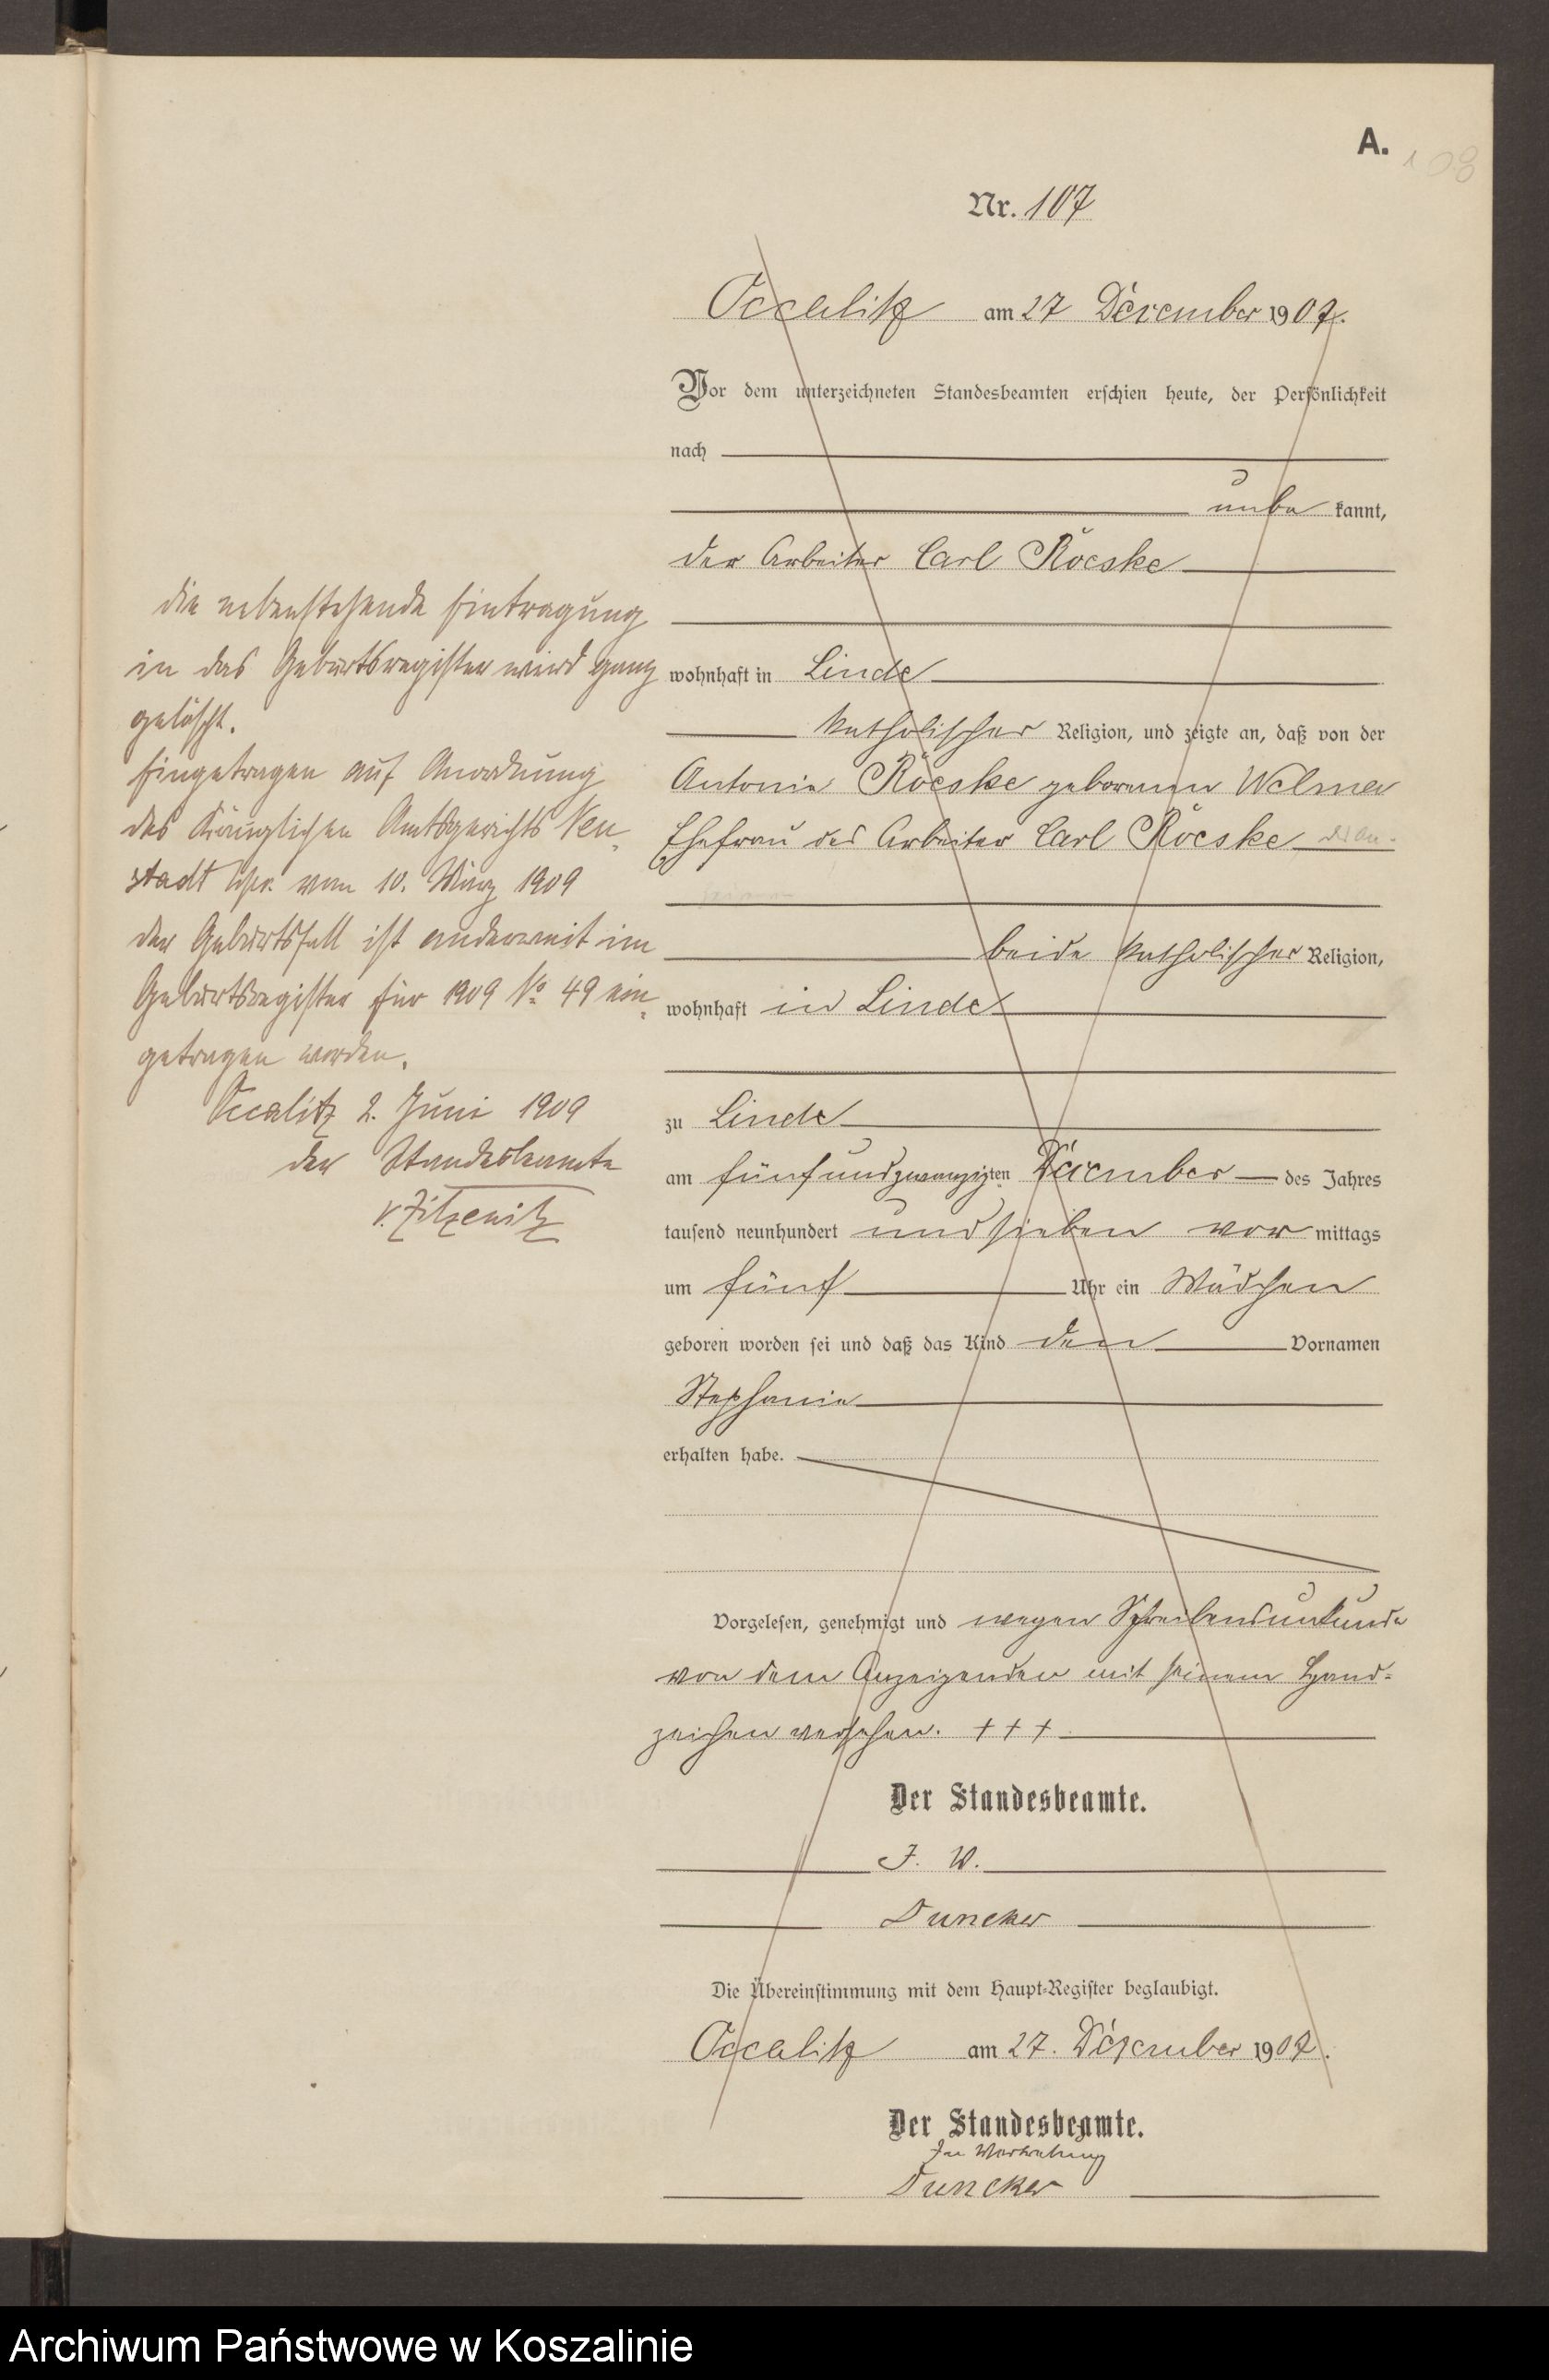 A.
108
Nr. 107
Occalitz am 27 Dezember 1907.
Vor dem unterzeichneten Standesbeamten erschien heute, der Persönlichkeit
nach
unbekannt,
der Arbeiter Carl Röeske
wohnhaft in Linde
katholischer Religion, und zeigte an, daß von der
Antonie Röeske geborenen Welmer
Ehefrau des Arbeiter Carl Röeske
beide katholischer Religion,
wohnhaft in Linde
zu Linde
am fünfundzwanzigten Dezember des Jahres
tausend neunhundert und sieben vormittags
um fünf Uhr ein Mädchen
geboren worden sei und daß das Kind den Vornamen
Stephanie
erhalten habe.
Vorgelesen, genehmigt und wegen Schreibensunkunde
von dem Anzeigenden mit seinem Hand-
zeichen versehen. + + +
Der Standesbeamte.
J. V.
Duncker
Die Übereinstimmung mit dem Haupt-Register beglaubigt.
Occalitz am 27. Dezember 1907.
Der Standesbeamte.
In Vertretung
Duncker
die nebenstehende Eintragung
in das Geburtsregister wird ganz
gelöscht.
Eingetragen auf Anordnung
des Königlichen Amtsgerichts Neu-
stadt Wpr. vom 10. März 1909
der Geburtsfall ist anderweit im
Geburtsregister für 1909 No 49 ein-
getragen worden.
Occalitz 2. Juni 1909
der Standesbeamte
v. Zitzewitz
Archiwum Państwowe w Koszalinie